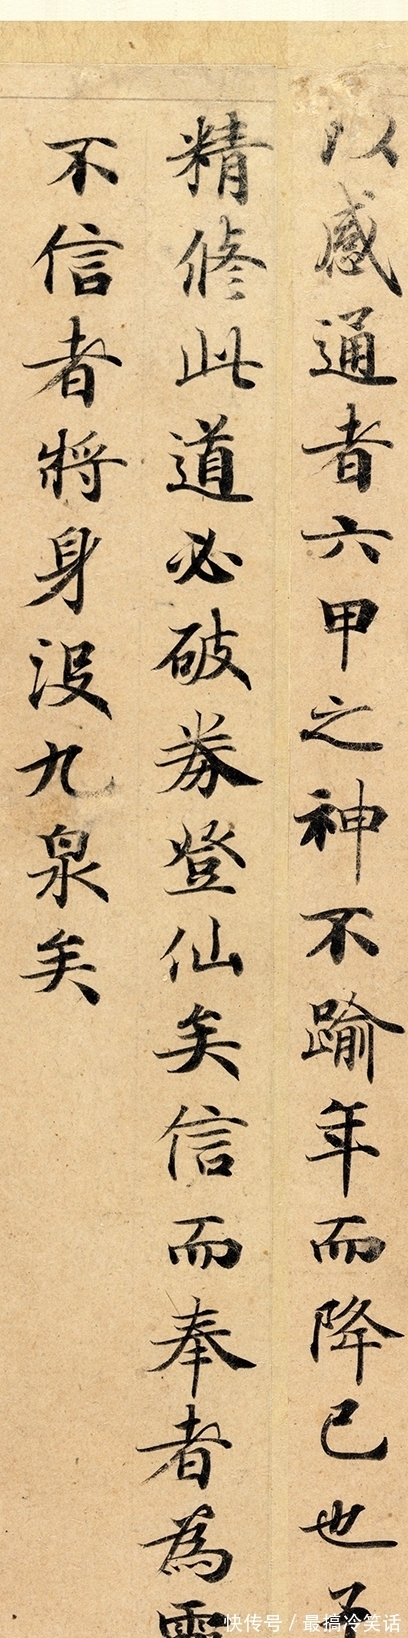 以感通者六甲之神不踰年而降已也
精修此道必破券登仙矣信而奉者為
不信者將身沒九泉矣
快传号 / 最搞冷笑话